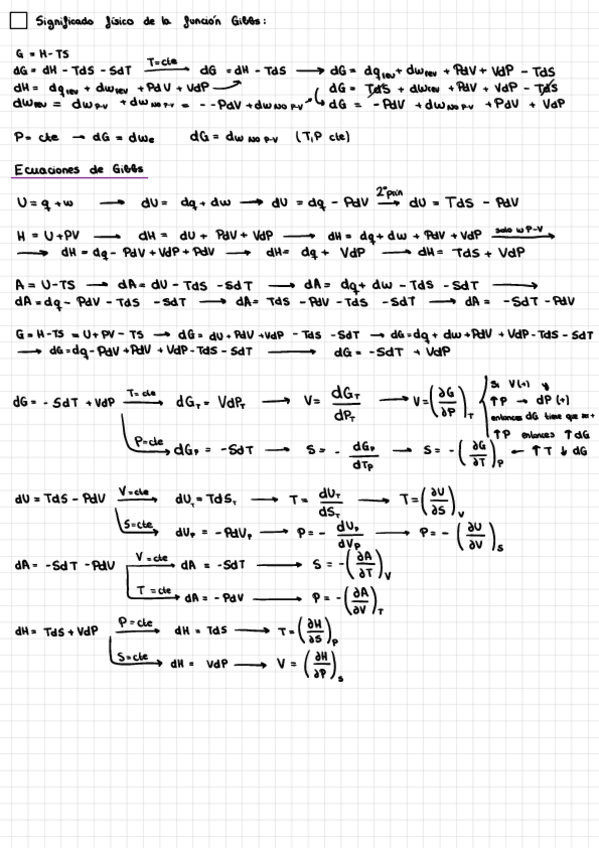 Significado físico de la función Gibbs:
G = H-TS
dG = dH - TdS - SdT T=cte → dG = dH - TdS → dG = dq rev + dw rev + PdV + VdP - TdS
dH = dq rev + dw rev + PdV + VdP → dG = TdS + dw rev + PdV + VdP - TdS
dw rev = dw P-V + dw NO P-V = - -PdV + dw NO P-V → dG = -PdV + dw NO P-V + PdV + VdP
P= cte → dG = dwe dG = dw NO P-V (T,P cte)
Ecuaciones de Gibbs
U = q + w → dU = dq + dw → dU = dq - PdV 2º prin → dU = TdS - PdV
H = U+PV → dH = dU + PdV + VdP → dH = dq + dw + PdV + VdP solo w P-V →
→ dH = dq - PdV + VdP + PdV → dH = dq + VdP → dH = TdS + VdP
A = U-TS → dA = dU - TdS - SdT → dA = dq + dw - TdS - SdT →
dA = dq - PdV - TdS - SdT → dA = TdS - PdV - TdS - SdT → dA = -SdT - PdV
G = H-TS = U + PV - TS → dG = dU + PdV + VdP - TdS - SdT → dG = dq + dw + PdV + VdP - TdS - SdT
→ dG = dq - PdV + PdV + VdP - TdS - SdT → dG = -SdT + VdP
dG = - SdT + VdP T=cte → dG_T = VdP_T → V = dG_T/dP_T → V = (∂G/∂P)_T
Si V(+) y
↑P → dP (+)
entonces dG tiene que ser +
↑P entonces ↑dG
P=cte → dG_P = -SdT → S = - dG_P/dT_P → S = -(∂G/∂T)_P ← ↑T ↓dG
dU = TdS - PdV V=cte → dU_T = TdS_T → T = dU_T/dS_T → T = (∂U/∂S)_V
S=cte → dU_P = -PdV_P → P = - dU_P/dV_P → P = -(∂U/∂V)_S
dA = -SdT - PdV V=cte → dA = -SdT → S = -(∂A/∂T)_V
T=cte → dA = -PdV → P = -(∂A/∂V)_T
dH = TdS + VdP P=cte → dH = TdS → T = (∂H/∂S)_P
S=cte → dH = VdP → V = (∂H/∂P)_S